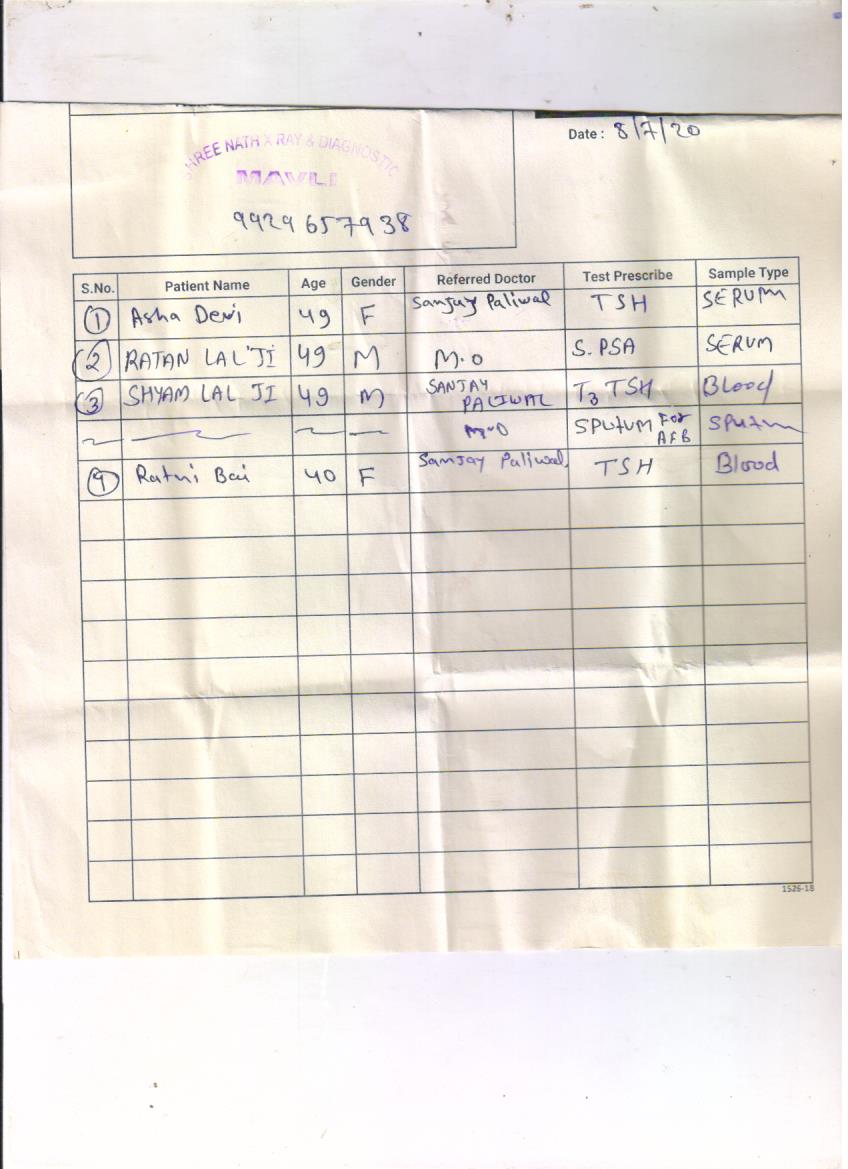 Date : 8/7/20
SHREE NATH X RAY & DIAGNOSTIC
MAVLI
9929657938
S.No. Patient Name Age Gender Referred Doctor Test Prescribe Sample Type
1 Asha Devi 49 F Sanjay Paliwal TSH SERUM
2 RATAN LAL JI 49 M M.O S. PSA SERUM
3 SHYAM LAL JI 49 M SANJAY PALIWAL T3 TSH Blood
M.O SPUTUM For AFB Sputum
4 Ratni Bai 40 F Sanjay Paliwal TSH Blood
1526-18